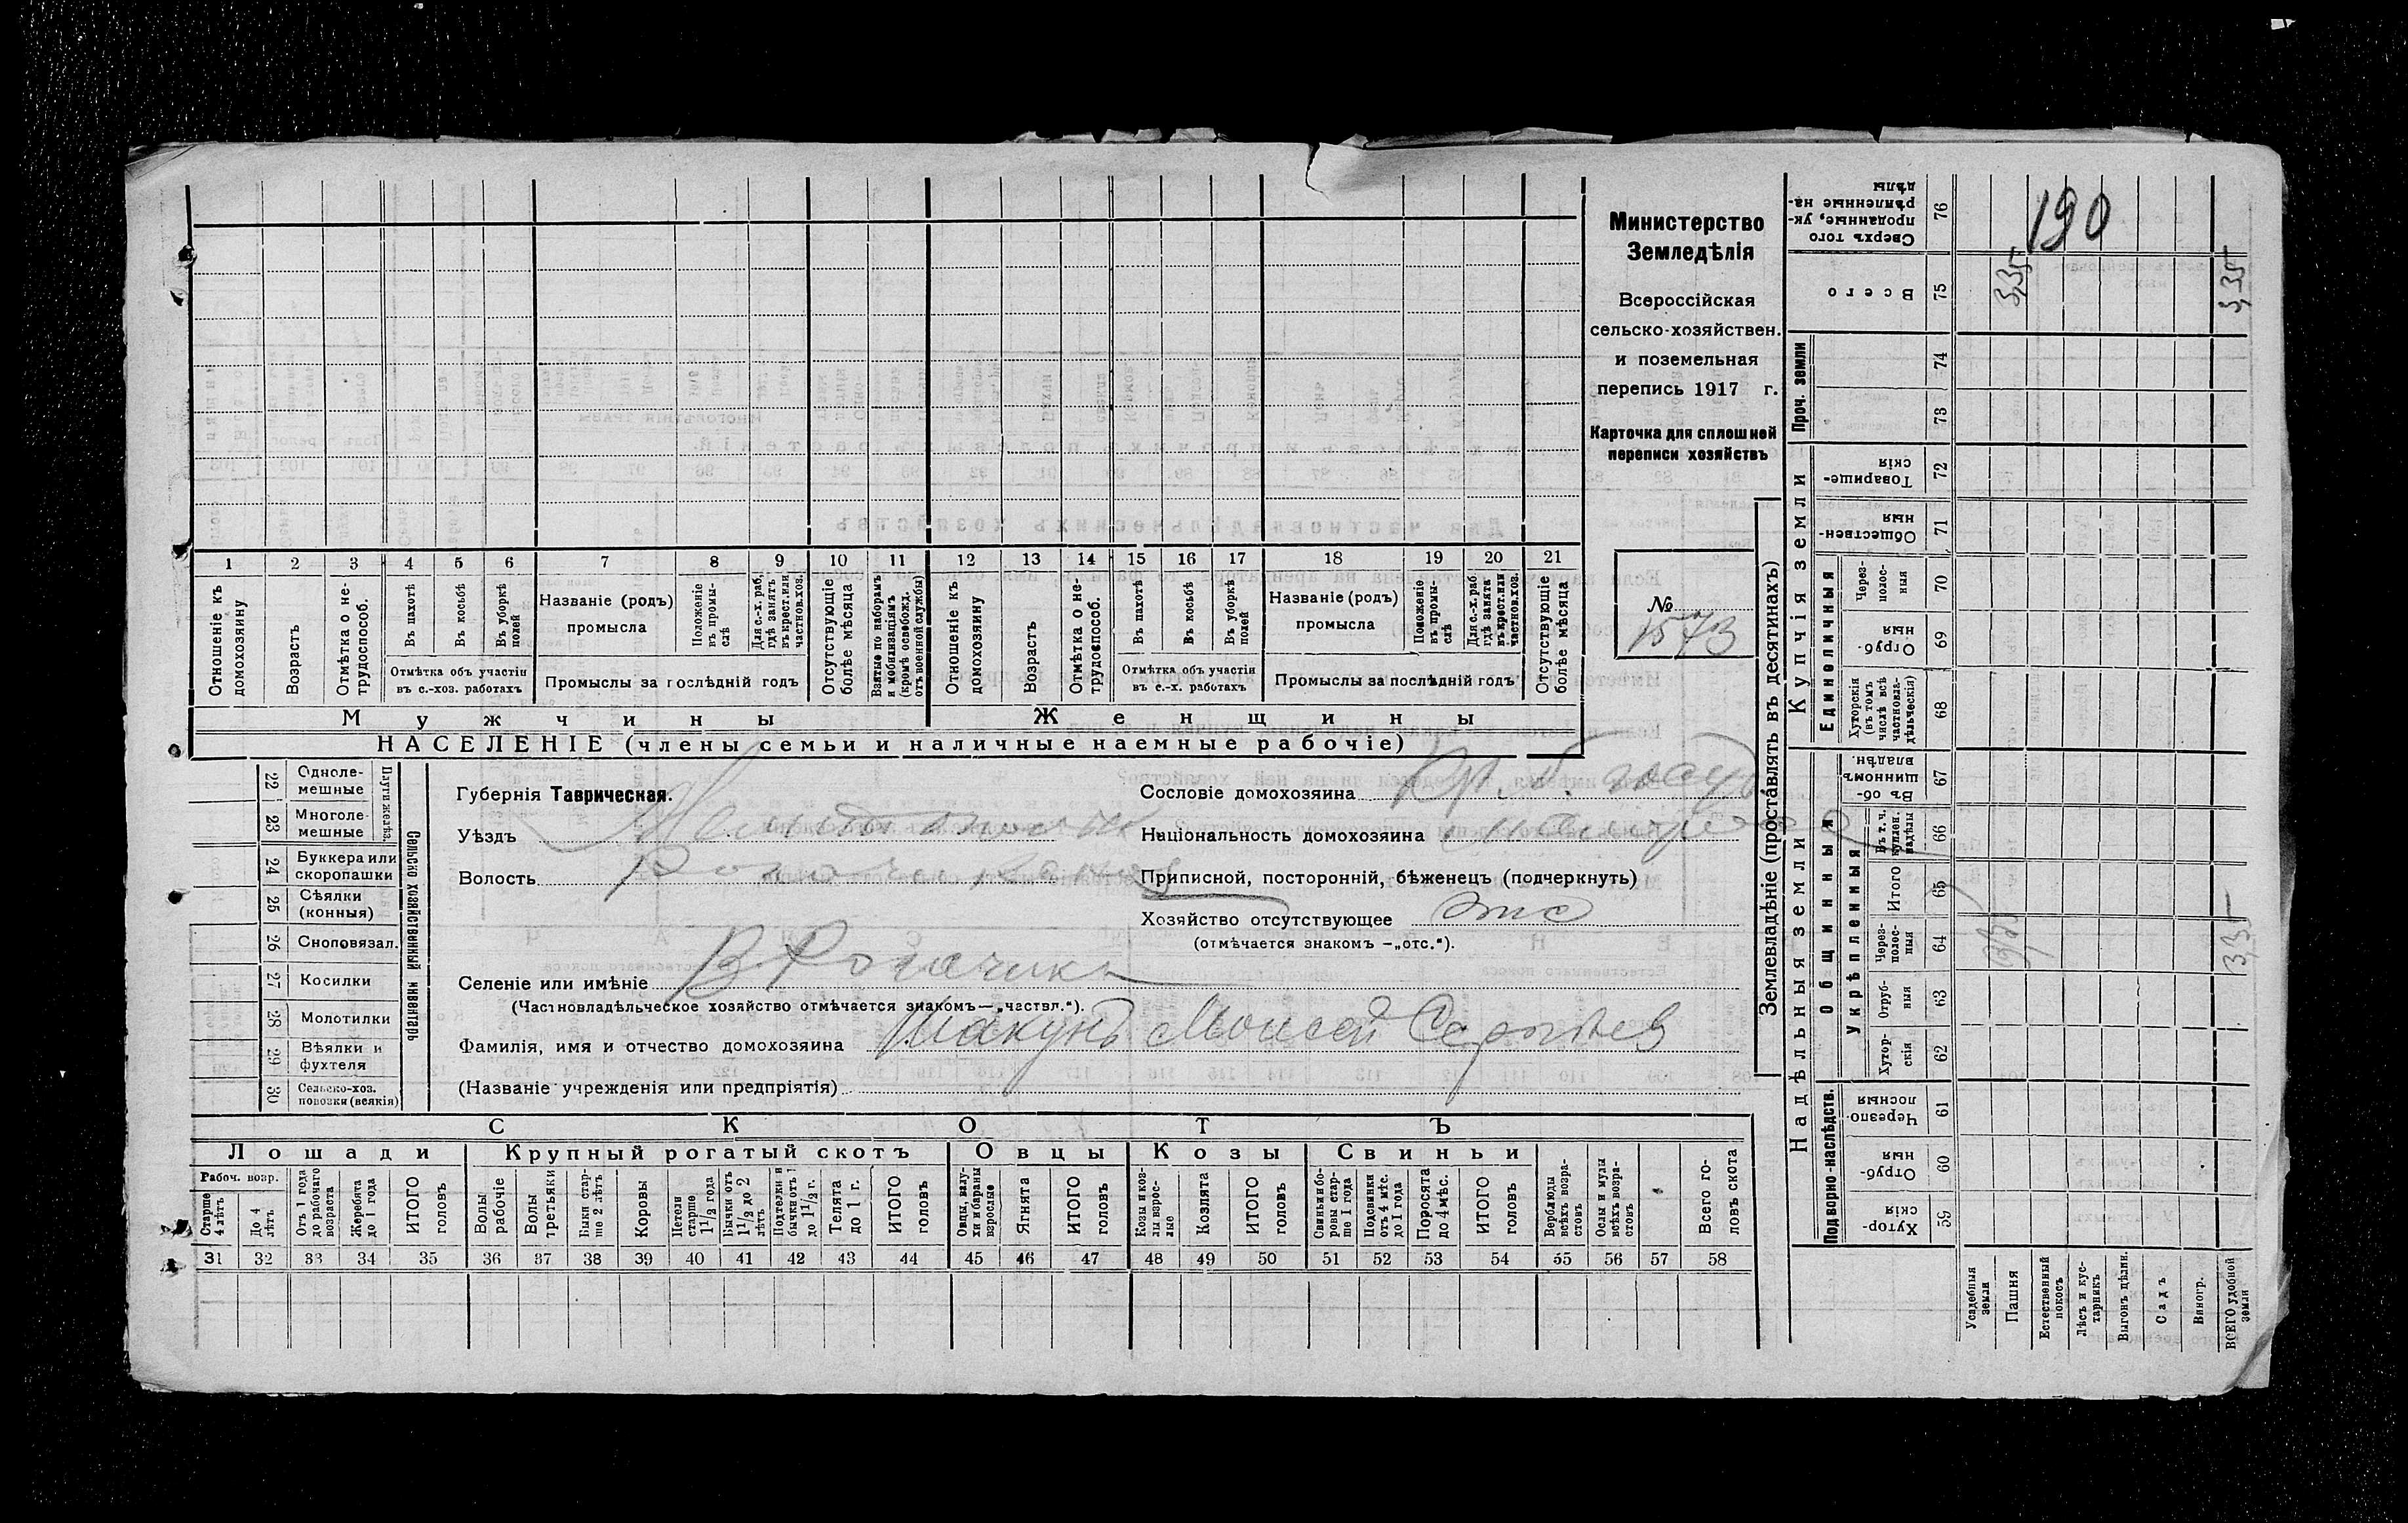 Министерство
Земледѣлія
Всероссійская
сельско-хозяйствен.
и поземельная
перепись 1917 г.
Карточка для сплошной
переписи хозяйствъ
№
1573
1 2 3 4 5 6 7 8 9 10 11 12 13 14 15 16 17 18 19 20 21
Отношеніе къ домохозяину
Возрастъ
Отмѣтка о не-трудоспособ.
Въ пахотѣ
Въ косьбѣ
Въ уборкѣ полей
Отмѣтка объ участіи
въ с.-хоз. работахъ
Названіе (родъ)
промысла
Положеніе въ промы-слѣ
Для с.-х. раб. гдѣ занятъ въ крест. или частнов. хоз.
Промыслы за послѣдній годъ
Отсутствующіе болѣе мѣсяца
Взятые по наборамъ и мобилизаціямъ (кромѣ освобожд. отъ военной службы)
Отношеніе къ домохозяину
Возрастъ
Отмѣтка о не-трудоспособ.
Въ пахотѣ
Въ косьбѣ
Въ уборкѣ полей
Отмѣтка объ участіи
въ с.-х. работахъ
Названіе (родъ)
промысла
Положеніе въ промы-слѣ
Для с.-х. раб. гдѣ занята въ крест. или частнов. хоз.
Промыслы за послѣдній годъ
Отсутствующіе болѣе мѣсяца
Мужчины
Женщины
НАСЕЛЕНІЕ (члены семьи и наличные наемные рабочіе)
22 Одноле-мешные
23 Многоле-мешные
Плуги желѣз.
24 Буккера или скоропашки
25 Сѣялки (конныя)
26 Сноповязал.
27 Косилки
28 Молотилки
29 Вѣялки и фухтеля
30 Сельско-хоз. повозки (всякія)
Сельско хозяйственный инвентарь
Губернія Таврическая.
Уѣздъ
Волость
Селеніе или имѣніе В Рогачикъ
(Частновладѣльческое хозяйство отмѣчается знакомъ—„частвл.“).
Фамилія, имя и отчество домохозяина Шакунъ Моисей Сергѣев
(Названіе учрежденія или предпріятія)
Сословіе домохозяина
Національность домохозяина
Приписной, посторонній, бѣженецъ (подчеркнуть)
Хозяйство отсутствующее отс
(отмѣчается знакомъ —„отс.“).
СКОТЪ
Лошади
Крупный рогатый скотъ
Овцы
Козы
Свиньи
Рабоч. возр.
Старше 4 лѣтъ
До 4 лѣтъ.
Отъ 1 года до рабочаго возраста
Жеребята до 1 года
ИТОГО головъ
Волы рабочіе
Волы третьяки
Быки стар-ше 2 лѣтъ
Коровы
Нетели старше 1 1/2 года
Бычки отъ 1 1/2 до 2 лѣтъ
Подтелки и бычки отъ 1 до 1 1/2 г.
Телята до 1 г.
ИТОГО головъ
Овцы, валу-хи и бараны взрослые
Ягнята
ИТОГО головъ
Козы и коз-лы взрос-лые
Козлята
ИТОГО головъ
Свиньи и бо-ровы стар-ше 1 года
Подсвинки отъ 4 мѣс. до 1 года
Поросята до 4 мѣс.
ИТОГО головъ
Верблюды всѣхъ возра-стовъ
Ослы и мулы всѣхъ возра-стовъ
Всего го-ловъ скота
31 32 33 34 35 36 37 38 39 40 41 42 43 44 45 46 47 48 49 50 51 52 53 54 55 56 57 58
Землевладѣніе (проставлять въ десятинахъ)
Надѣльныя земли
Купчія земли
Проч. земли
Подворно-наслѣдств.
Общинныя
Укрѣпленныя
Единоличныя
Сверхъ того проданные, ук-рѣпленные на-дѣлы 76
190
Всего 75
3,35
3,35
74
73
Товарище-скія 72
Обществен-ныя 71
Через-полос-ныя 70
Отруб-ныя 69
Хуторскія (въ томъ числѣ всѣ частновла-дѣльческія) 68
Въ об-щинномъ владѣн. 67
Въ т. ч. куплен. надѣлы 66
Итого 65
Через-полос-ныя 64
3,35
Отруб-ныя 63
Хутор-скія 62
Черезпо-лосныя 61
Отруб-ныя 60
Хутор-скія 59
Усадебныя земли
Пашня
Естественный покосъ
Лѣсъ и кус-тарникъ
Выгонъ цѣлин.
Садъ
Виногр.
ВСЕГО удобной земли